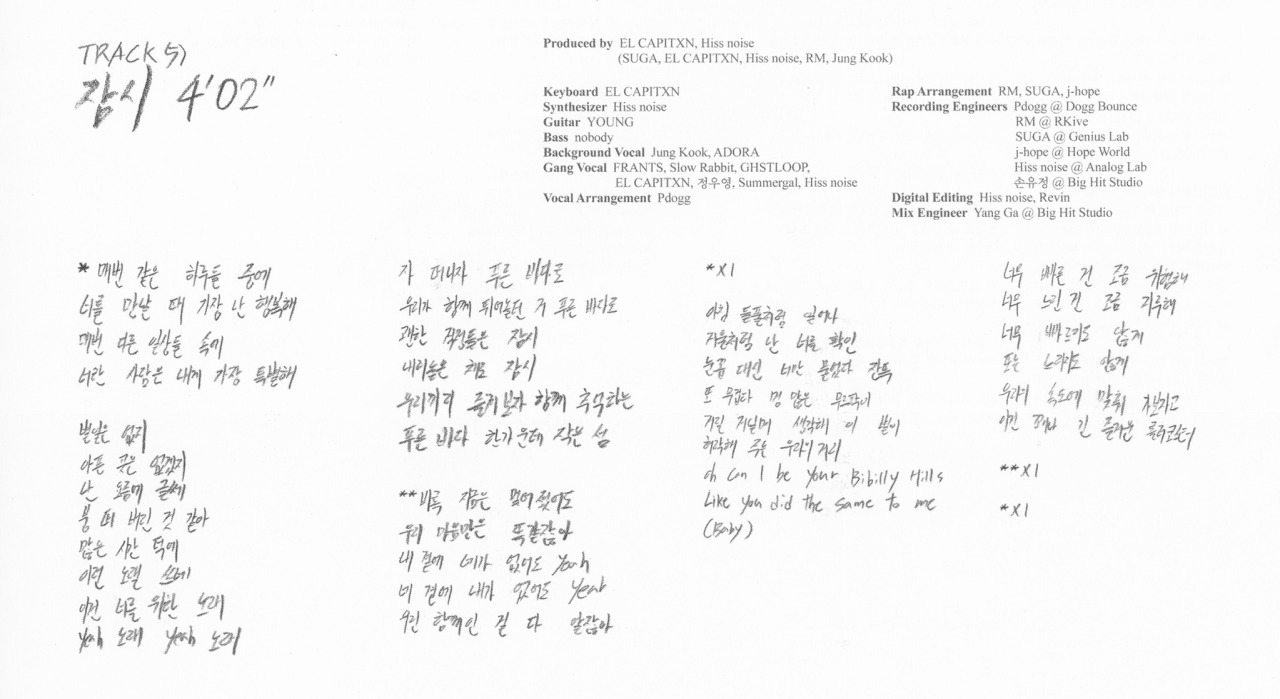 TRACK 5)
잠시 4'02"
Produced by EL CAPITXN, Hiss noise
(SUGA, EL CAPITXN, Hiss noise, RM, Jung Kook)
Keyboard EL CAPITXN
Synthesizer Hiss noise
Guitar YOUNG
Bass nobody
Background Vocal Jung Kook, ADORA
Gang Vocal FRANTS, Slow Rabbit, GHSTLOOP,
EL CAPITXN, 정우영, Summergal, Hiss noise
Vocal Arrangement Pdogg
Rap Arrangement RM, SUGA, j-hope
Recording Engineers Pdogg @ Dogg Bounce
RM @ RKive
SUGA @ Genius Lab
j-hope @ Hope World
Hiss noise @ Analog Lab
손유정 @ Big Hit Studio
Digital Editing Hiss noise, Revin
Mix Engineer Yang Ga @ Big Hit Studio
* 매번 같은 하루들 중에
너를 만날 때 가장 난 행복해
매번 다른 일상들 속에
너란 사람은 내게 가장 특별해
별일은 없지
아픈 곳은 없겠지
난 요즘에 글쎄
붕 떠 버린 것 같아
많은 시간 덕에
이런 노랠 쓰네
이건 너를 위한 노래
Yeah 노래 Yeah 노래
자 떠나자 푸른 바다로
우리가 함께 뛰어놀던 저 푸른 바다로
괜한 걱정들은 잠시
내려놓은 채로 잠시
우리끼리 즐겨보자 함께 추억하는
푸른 바다 한가운데 작은 섬
** 비록 지금은 멀어졌어도
우리 마음만은 똑같잖아
내 곁에 네가 없어도 Yeah
네 곁에 내가 없어도 Yeah
우린 함께인 걸 다 알잖아
*X1
아침 들풀처럼 일어나
거울처럼 난 너를 확인
눈꼽 대신 너만 묻었다 잔뜩
또 무겁다 멍 많은 무르팍이
거릴 거닐며 생각해 이 별이
허락해 주는 우리의 거리
Oh Can I be your Bibilly Hills
Like you did the same to me
(Baby)
너무 빠른 건 조금 위험해
너무 느린 건 조금 지루해
너무 빠르지도 않게
또는 느리지도 않게
우리의 속도에 맞춰 가보자고
이건 꽤나 긴 즐거운 롤러코스터
**X1
*X1